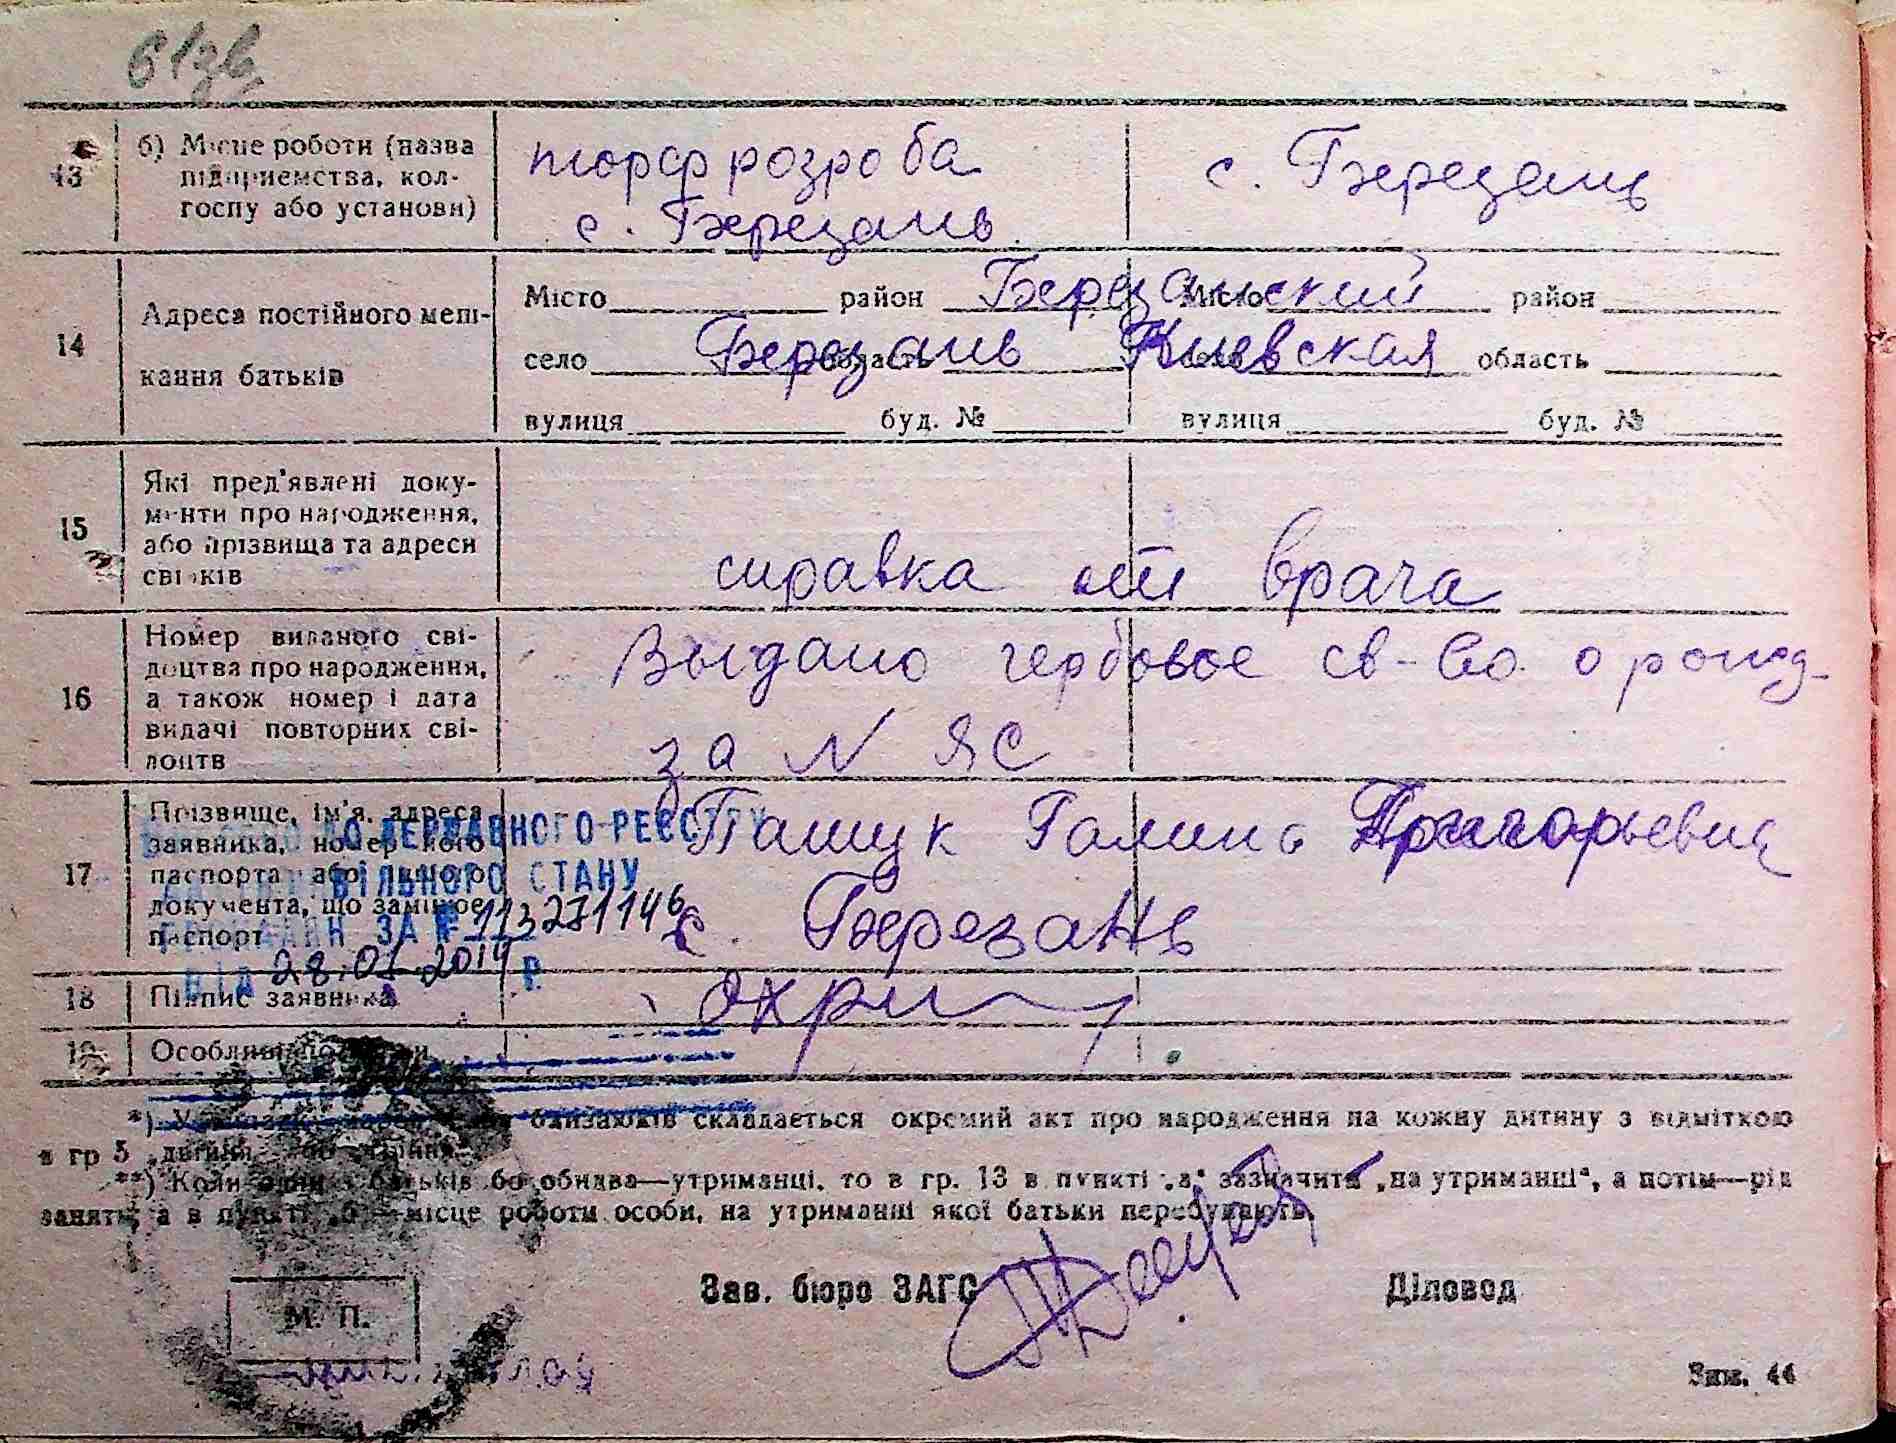 61зв.
13 б) Місце роботи (назва підприємства, кол-
госпу або установи)
торфрозроба
с. Березань
с. Березань
14 Адреса постійного меш-
кання батьків
Місто район Березанский Місто район
село Березань область Киевская село область
вулиця буд. № вулиця буд. №
15 Які пред'явлені доку-
менти про народження,
або прізвища та адреси
свідків
справка от врача
16 Номер виданого сві-
доцтва про народження,
а також номер і дата
видачі повторних сві-
доцтв
Выдано гербовое св-во о рожд-
за N ЯС
17 Прізвище, ім'я, адреса
заявника, номер його
паспорта або іншого
документа, що замінює
паспорт
Пащук Галина Григорьевна
с. Березань
ДО ДЕРЖАВНОГО РЕЄСТРУ
ЦИВІЛЬНОГО СТАНУ
ЗА № 113271146
ВІД 28.01.2014 Р.
18 Підпис заявника
19 Особливі помітки
*) У близнюків складається окремий акт про народження на кожну дитину з відміткою
в гр 5 „дитина
**) Коли один з батьків бо обидва—утриманці, то в гр. 13 в пункті „а" зазначити „на утриманні", а потім—рід
занять, а в пункті „б"—місце роботи особи, на утриманні якої батьки перебувають.
Зав. бюро ЗАГС Діловод
М. П.
Зам. 44